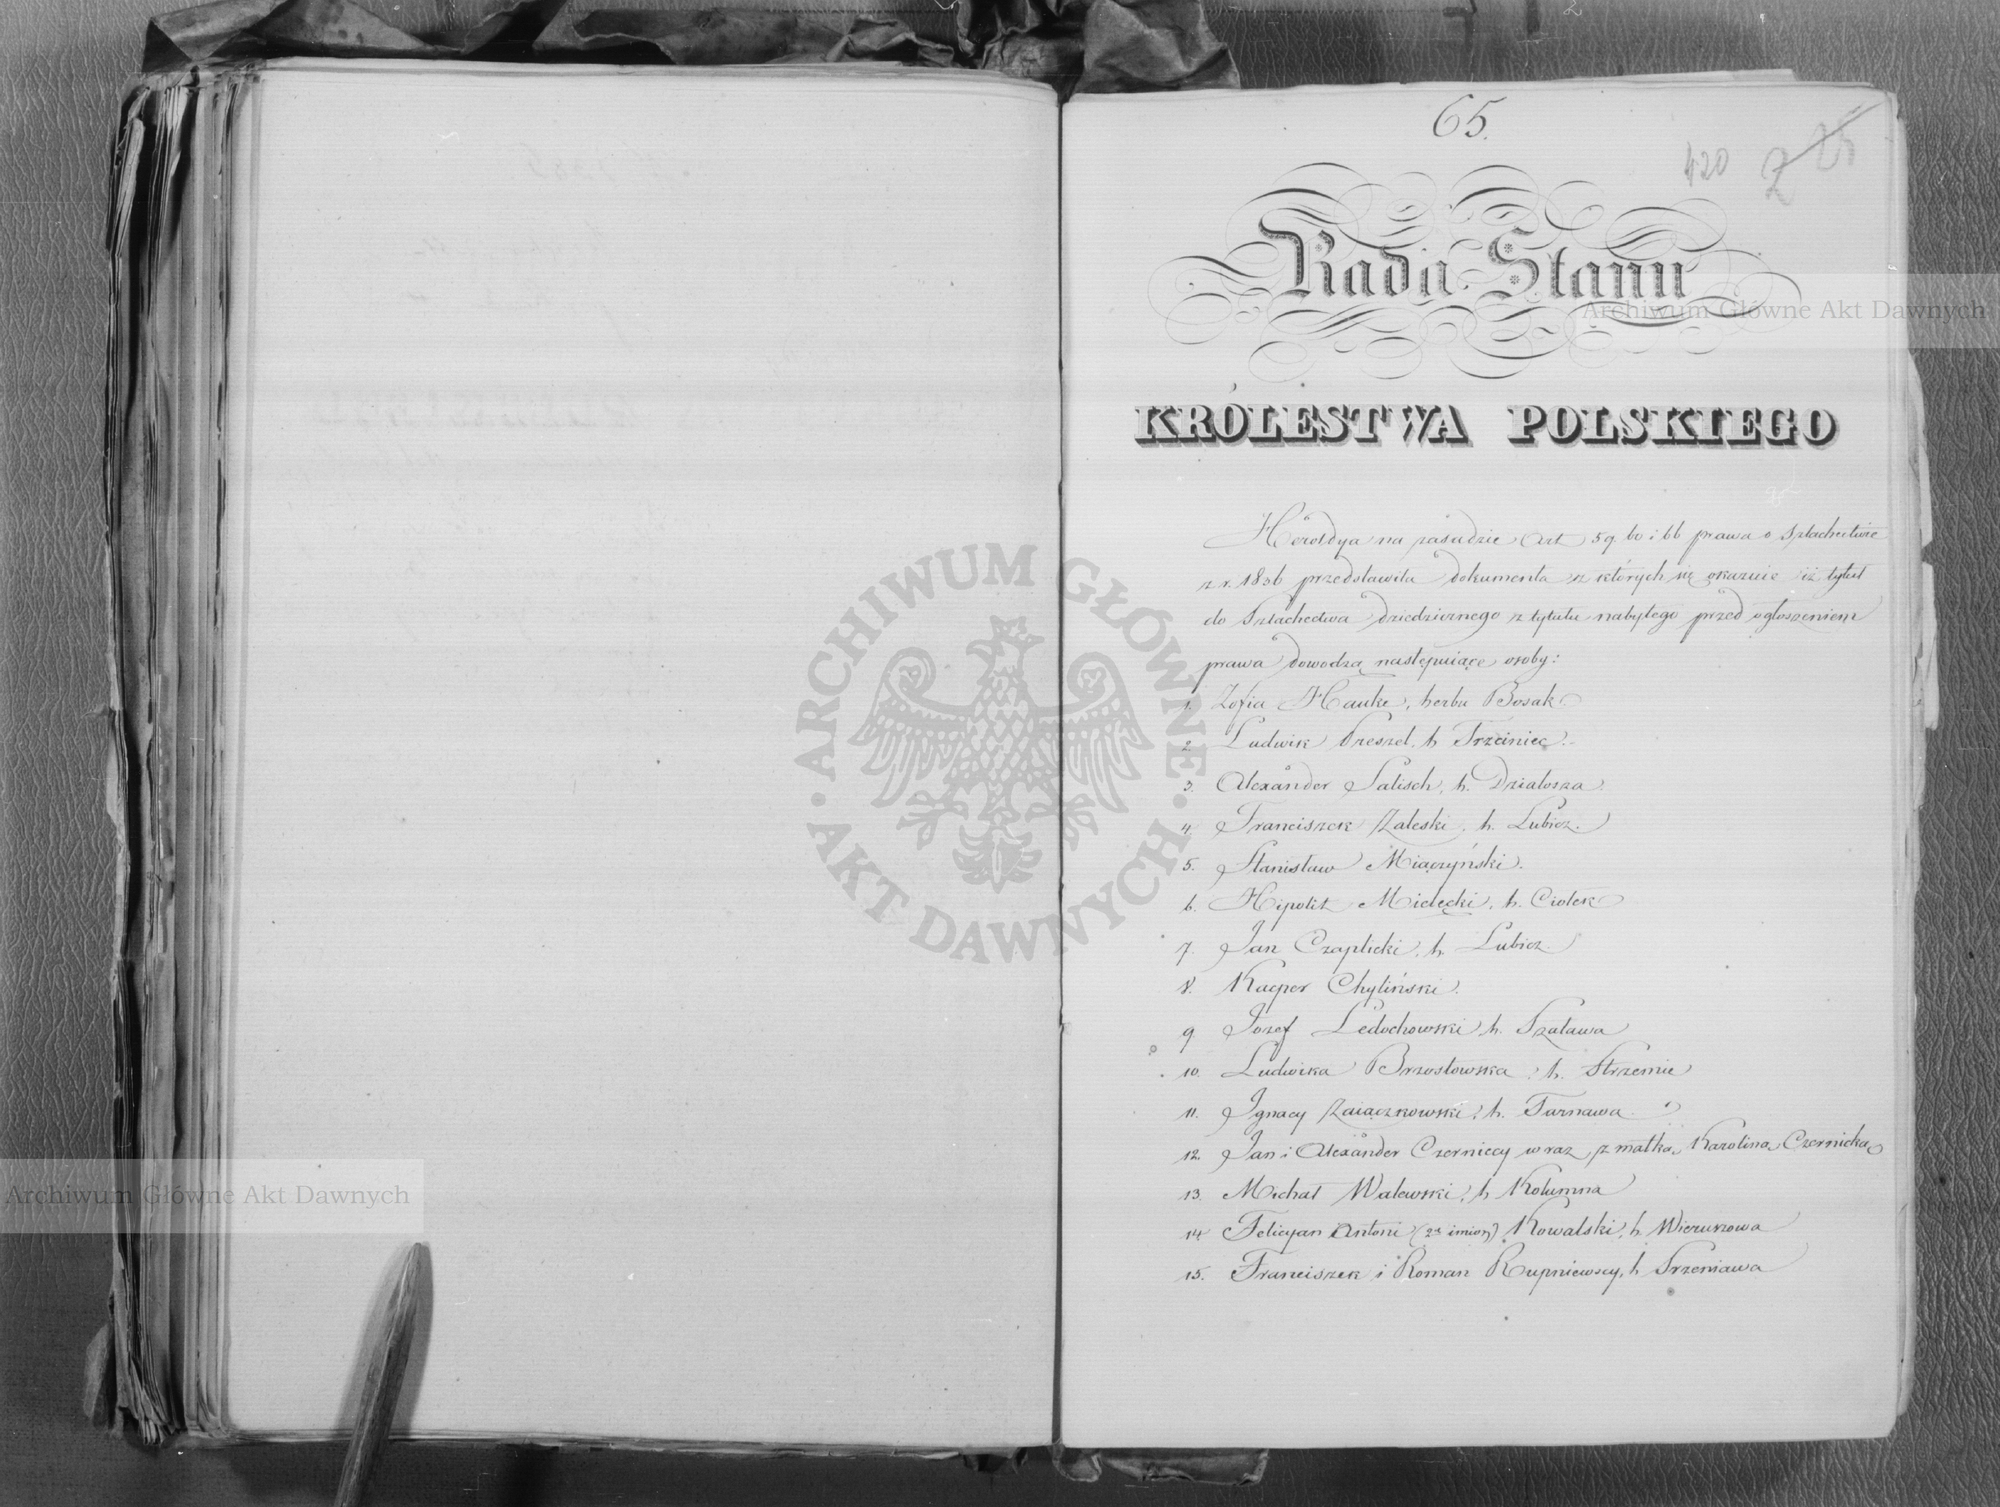 65.
420
Rada Stanu
KRÓLESTWA POLSKIEGO
Heroldya na zasadzie Art 59. 60 i 66 prawa o Szlachectwie
z r. 1836 przedstawiła dokumenta z których się okazuie iż tytuł
do Szlachectwa dziedzicznego z tytułu nabytego przed ogłoszeniem
prawa dowodzą następuiące osoby:
1. Zofia Hauke, herbu Bosak
2. Ludwik h. Trzciniec.
3. Alexander Salisch, h. Działosza
4. Franciszek Zaleski, h. Lubicz.
5. Stanisław Miączyński.
6. Hipolit Mielęcki, h. Ciołek
7. Jan Czaplicki, h. Lubicz
8. Kacper Chyliński.
9. Józef Ledochowski, h. Szaława
10. Ludwika Brzostowska, h. Strzemie
11. Ignacy Zaiączkowski, h. Tarnawa.
12. Jan i Alexander Czerniccy wraz z matką Karoliną Czernicką
13. Michał Walewski, h Kolumna
14 Felicyan Antoni (2ch imion) Kowalski, h. Wieruszowa
15. Franciszek i Roman Rupniewscy, h Srzeniawa
Archiwum Główne Akt Dawnych
ARCHIWUM GŁÓWNE AKT DAWNYCH
Archiwum Główne Akt Dawnych